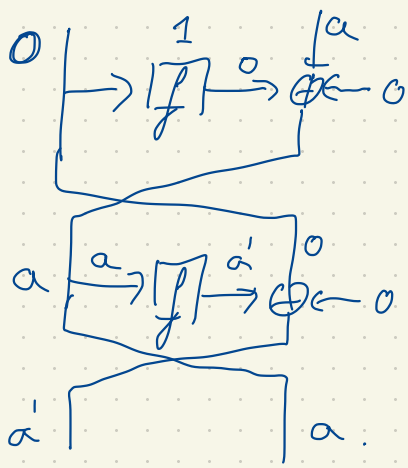 0 1 a
f 0 ⊕ 0
0
a a f a' ⊕ 0
a' a.